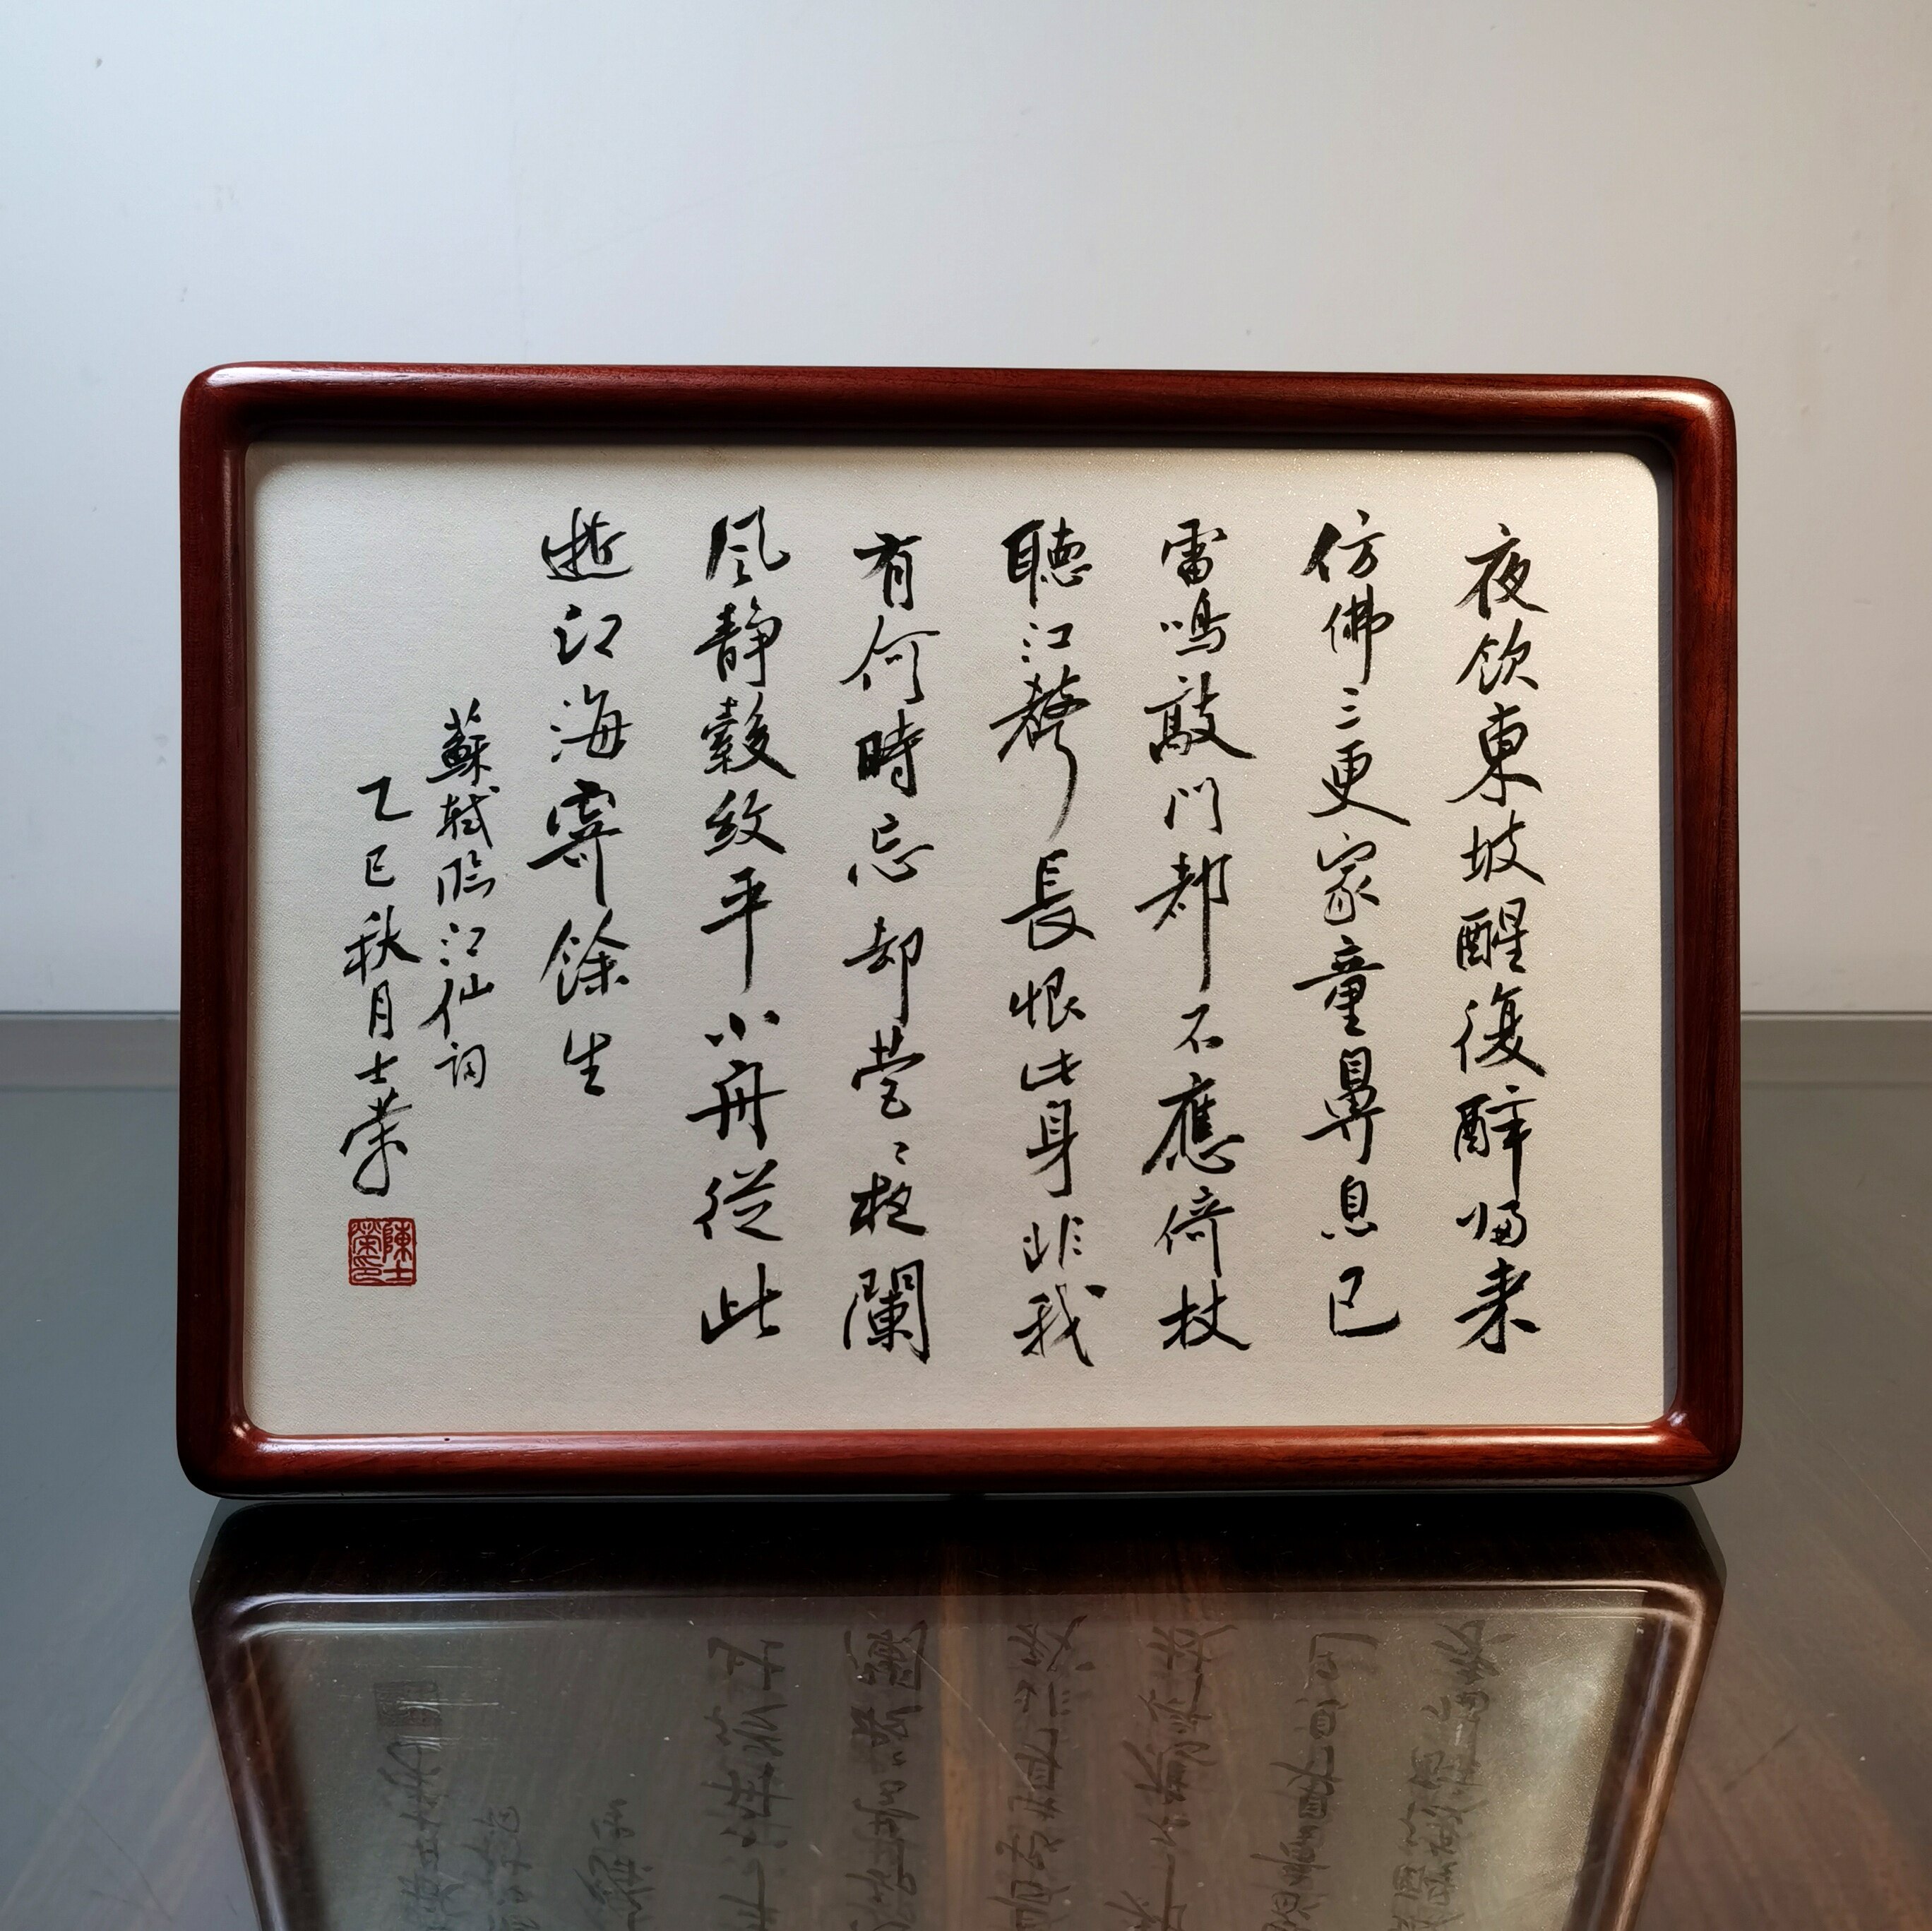 夜飲東坡醒復醉归来
仿佛三更家童鼻息已
雷鳴敲門都不應倚杖
聽江聲長恨此身非我
有何時忘却營〻夜闌
风静縠紋平小舟從此
逝江海寄餘生
蘇軾臨江仙词
乙巳秋月士荣
陳士榮印